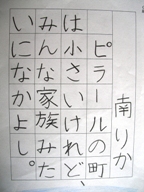 南りか
ピラールの町
は小さいけれど、
みんな家族みた
いになかよし。